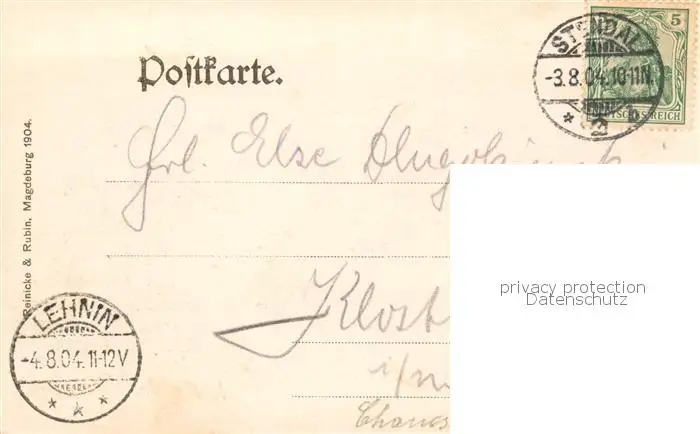 5
STENDAL
-3.8.04.10-11N.
* 2 b
DEUTSCHES REICH
Postkarte.
Frl. Else
Reinicke & Rubin, Magdeburg 1904.
privacy protection
Datenschutz
Klost
LEHNIN
-4.8.04.11-12V
* * *
i/m